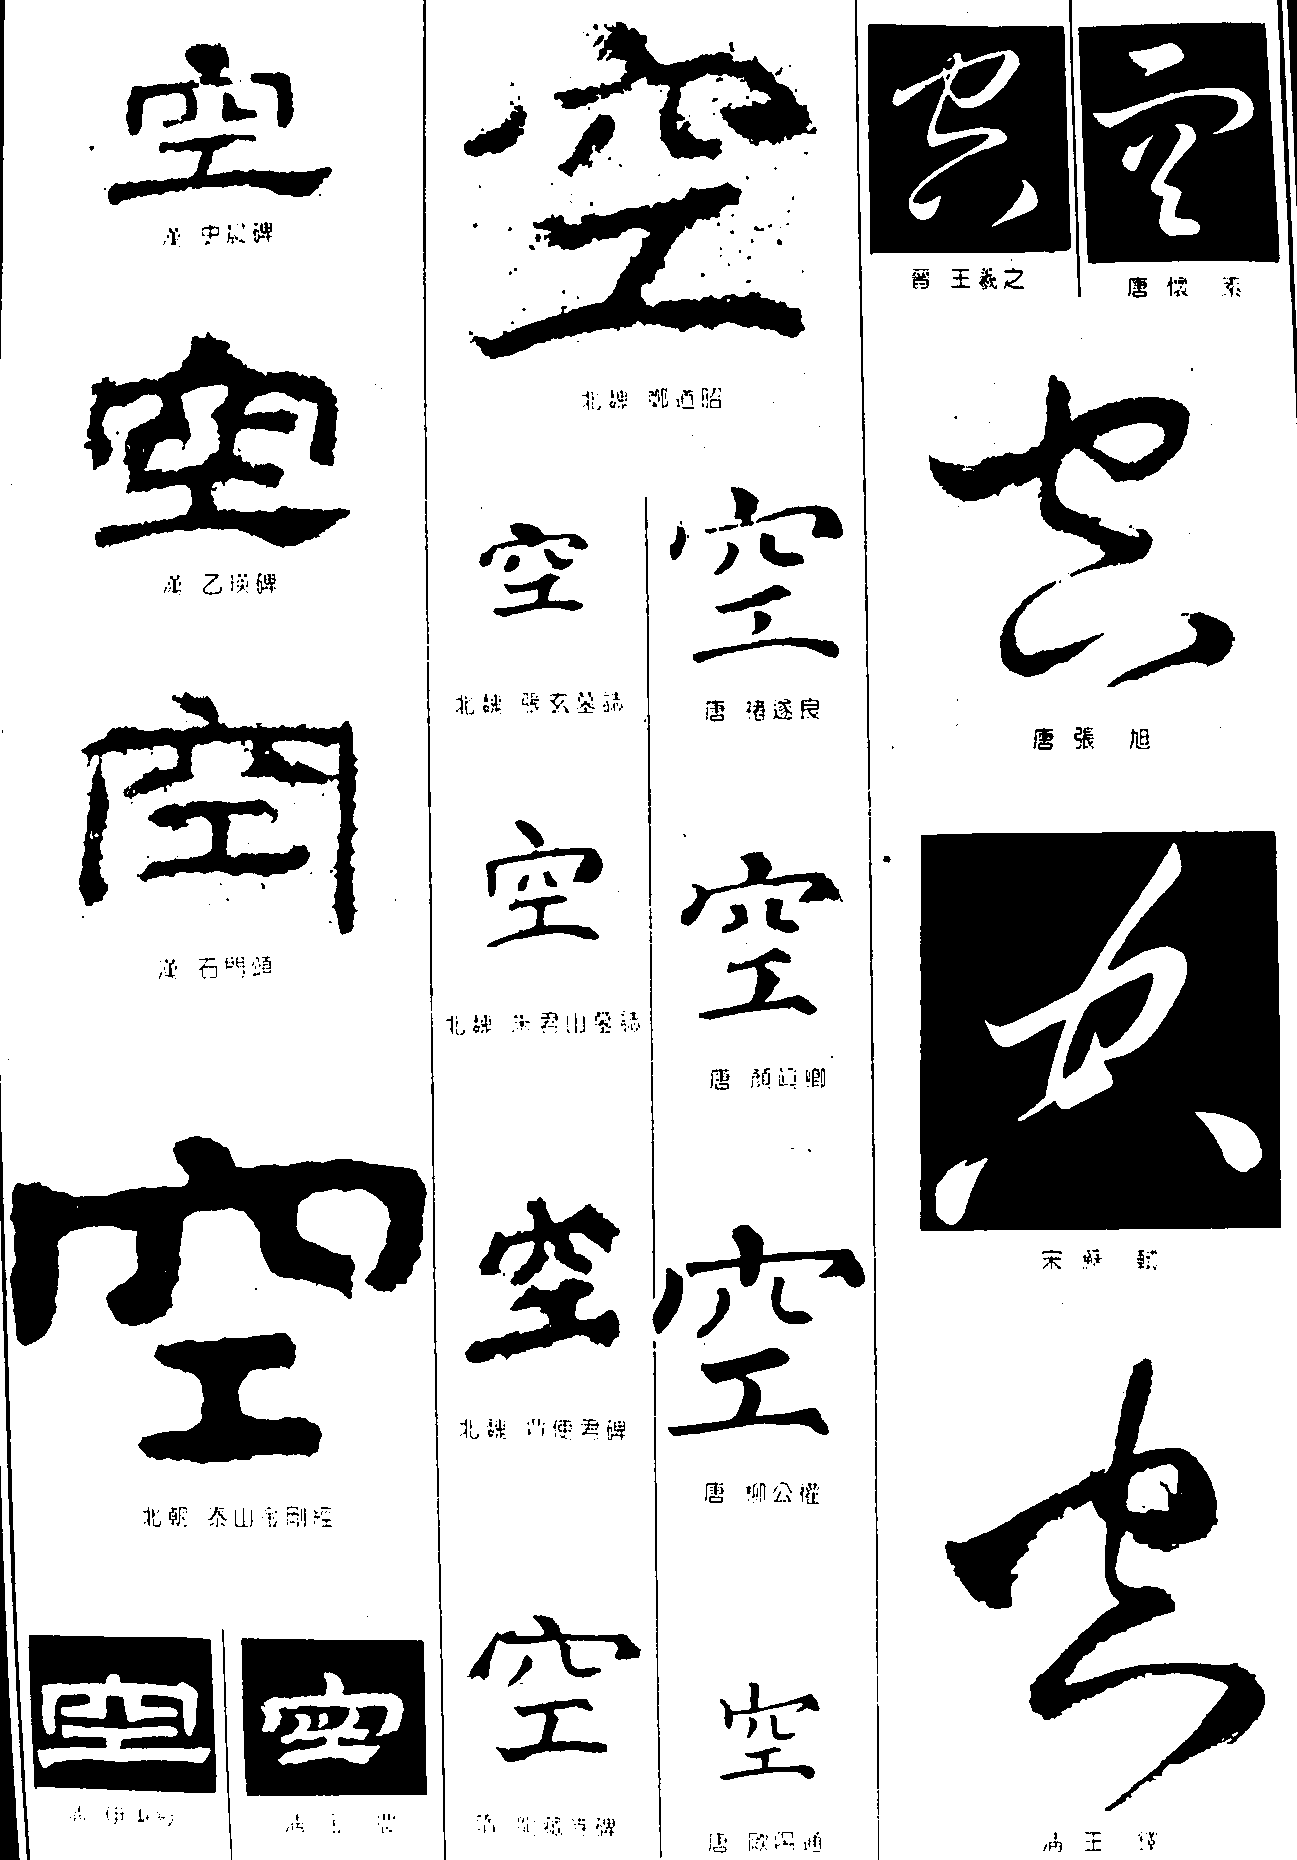 空
漢 史晨碑
空
漢 乙瑛碑
空
漢 石門頌
空
北朝 泰山金剛經
空
清 伊秉綬
空
空
北魏 鄭道昭
空
北魏 張玄墓誌
空
北魏 朱君山墓誌
空
北魏 曹使君碑
空
空
唐 褚遂良
空
唐 顏眞卿
空
唐 柳公權
空
唐 歐陽通
空
晉 王羲之
空
唐 懷 素
空
唐 張 旭
空
宋 蘇 軾
空
清 王 鐸